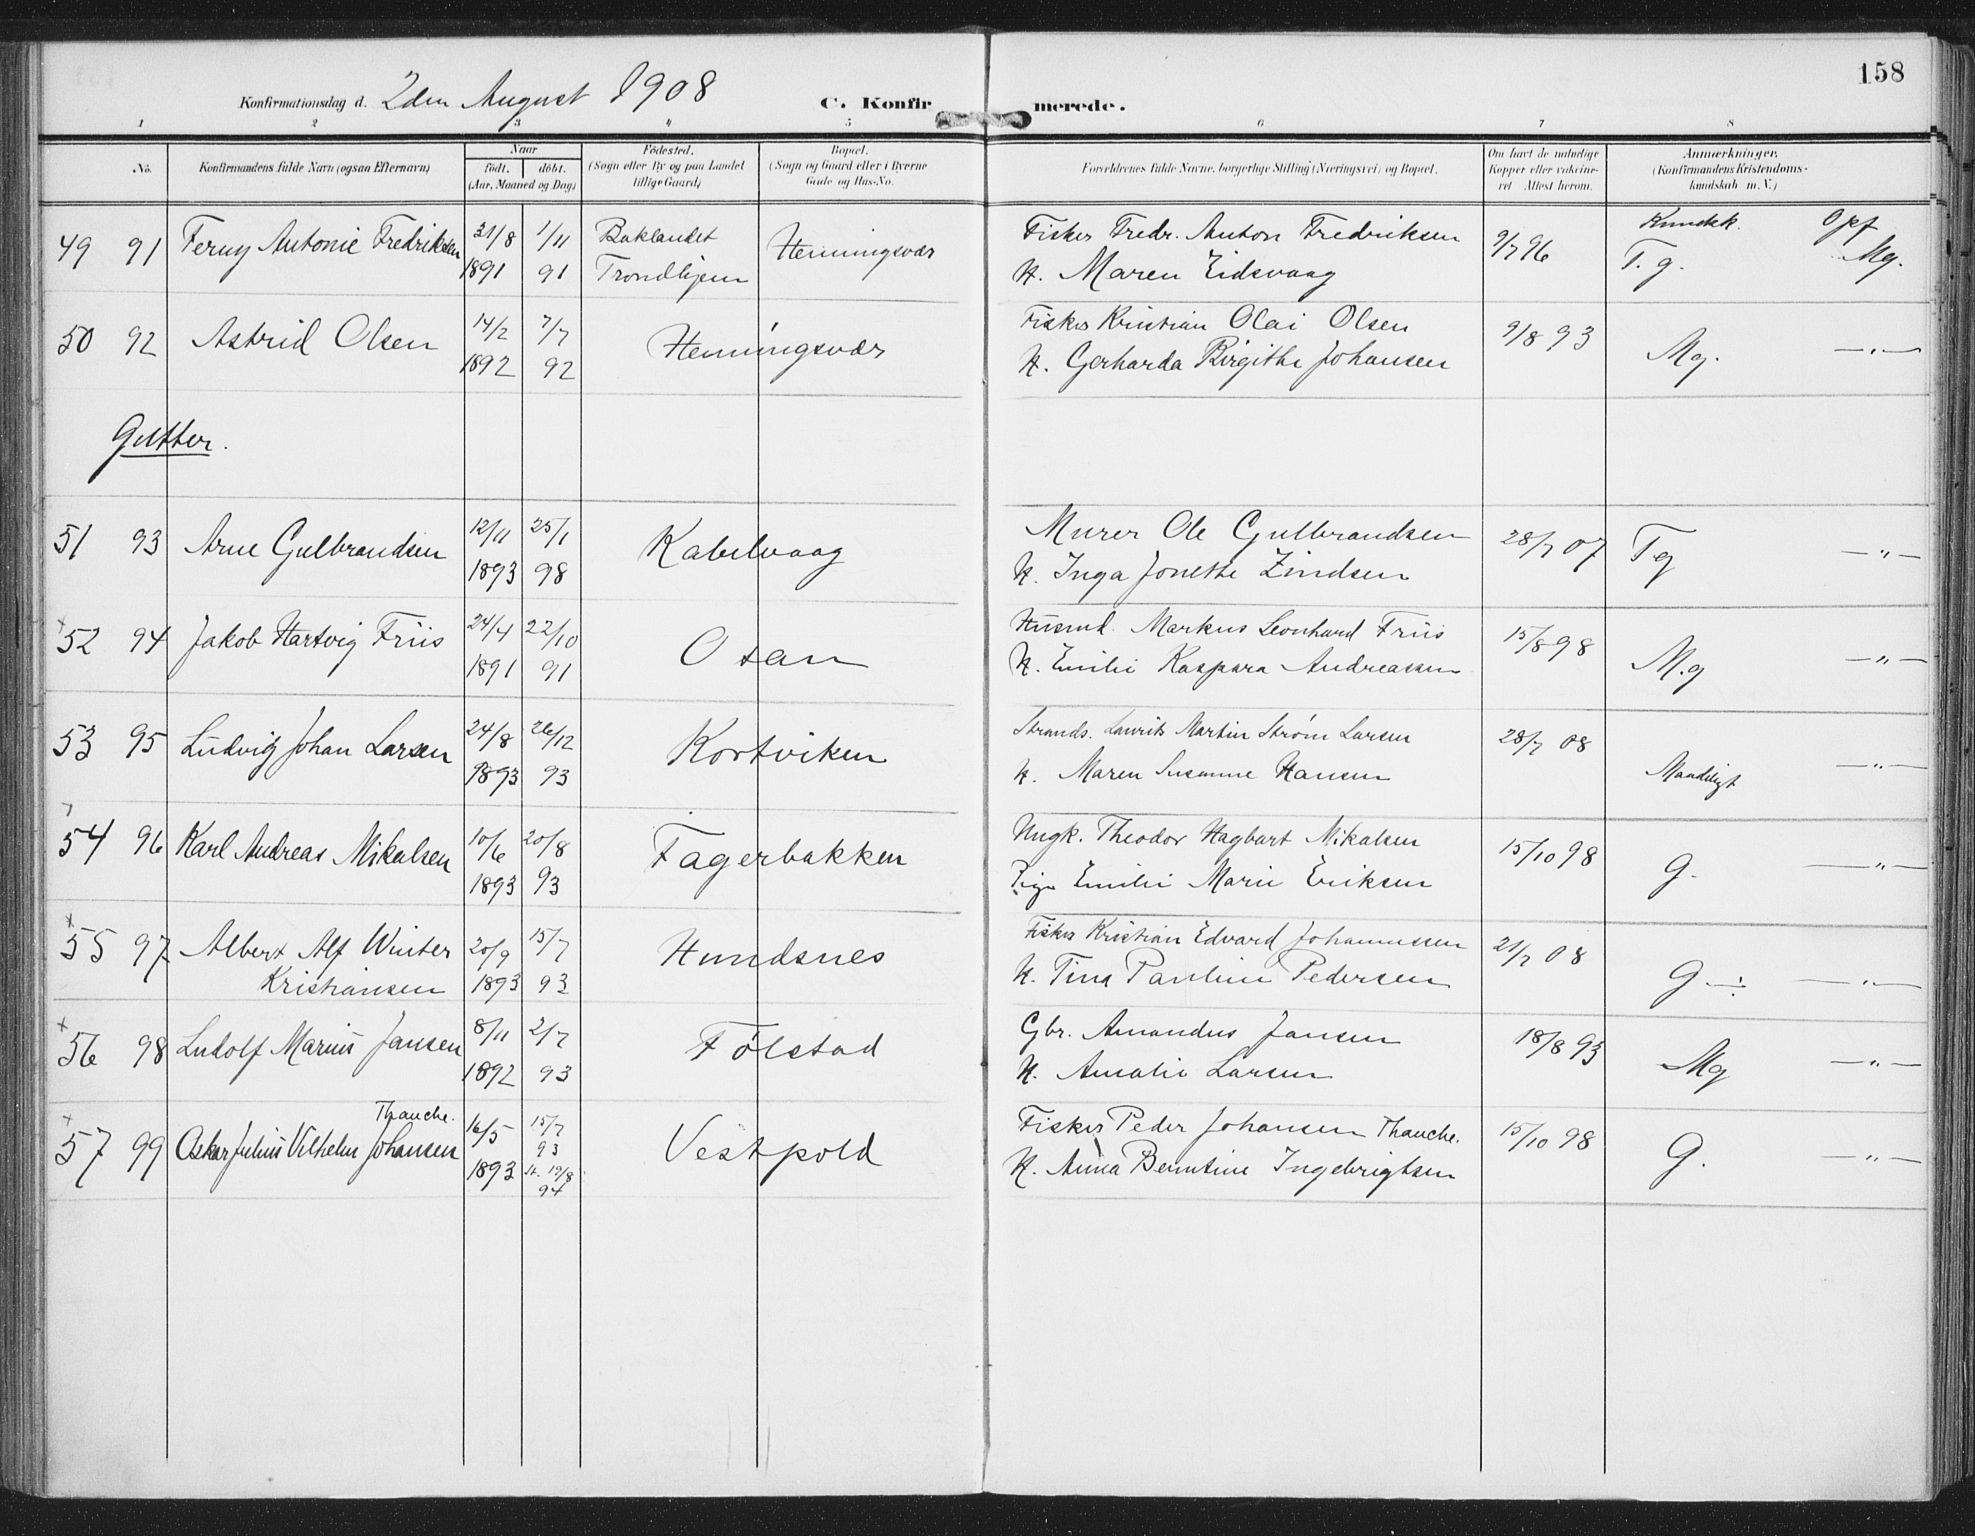 158
Konfirmationsdag d. 2den August 1908 C. Konfirmerede.
1 2 3 4 5 6 7 8
No. Konfirmandens fulde Navn (ogsaa Efternavn) Naar født. døbt. (Aar, Maaned og Dag) Fødested. (Sogn eller By og paa Landet tillige Gaard) Bopæl. (Sogn og Gaard eller i Byerne Gade og Hus-No. Forældrenes fulde Navne, borgerlige Stilling (Næringsvei) og Bopæl. Om havt de naturlige Kopper eller vaccineret Attest herom. Anmærkninger. (Konfirmandens Kristendomskundskab m. V.)
Kundsk. Opf
49 91 Ferny Antonie Fredriksen 31/8 1/11 Baklandet Henningsvær Fisker Fredr. Anton Fredriksen 9/7 96 T. g. Mg.
1891 91 Trondhjem H. Maren Eidsvaag
50 92 Astrid Olsen 14/2 7/7 Henningsvær Fisker Kristian Olai Olsen 9/8 93 Mg. —„—
1892 92 H. Gerharda Birgithe Johansen
Gutter.
51 93 Arne Gulbrandsen 12/11 25/1 Kabelvaag Murer Ole Gulbrandsen 28/7 07 Tg —„—
1893 98 H. Inga Jonette Zindsen
x 52 94 Jakob Hartvig Friis 24/4 22/10 Osan Husmd. Markus Leonhard Friis 15/8 98 M.g —„—
1891 91 H. Emilie Kaspara Andreassen
53 95 Ludvig Johan Larsen 24/8 26/12 Kortviken Strands. Laurits Martin Strøm Larsen 28/7 08 Maadeligt —„—
1893 93 H. Maren Susanne Hansen
54 96 Karl Andreas Mikalsen 10/6 20/8 Fagerbakken Ungk. Theodor Hagbart Mikalsen 15/10 98 G. —„—
1893 93 Pige Emilie Marie Eriksen
x 55 97 Albert Alf Winter 20/9 15/7 Hundsnes Fisker Kristian Edvard Johannessen 21/7 08 G —„—
Kristiansen 1893 93 H. Tina Pauline Pedersen
x 56 98 Ludolf Marius Jansen 8/11 2/7 Følstad Gbr. Amandus Jansen 18/8 93 Mg —„—
1892 93 H. Amalie Larsen
Thauche.
x 57 99 Oskar Julius Vilhelm Johansen 16/5 15/7 93 Vestpold Fisker Peder Johansen Thauche. 15/10 98 G. —„—
1893 19/8 94 H. Anna Berntine Ingebrigtsen